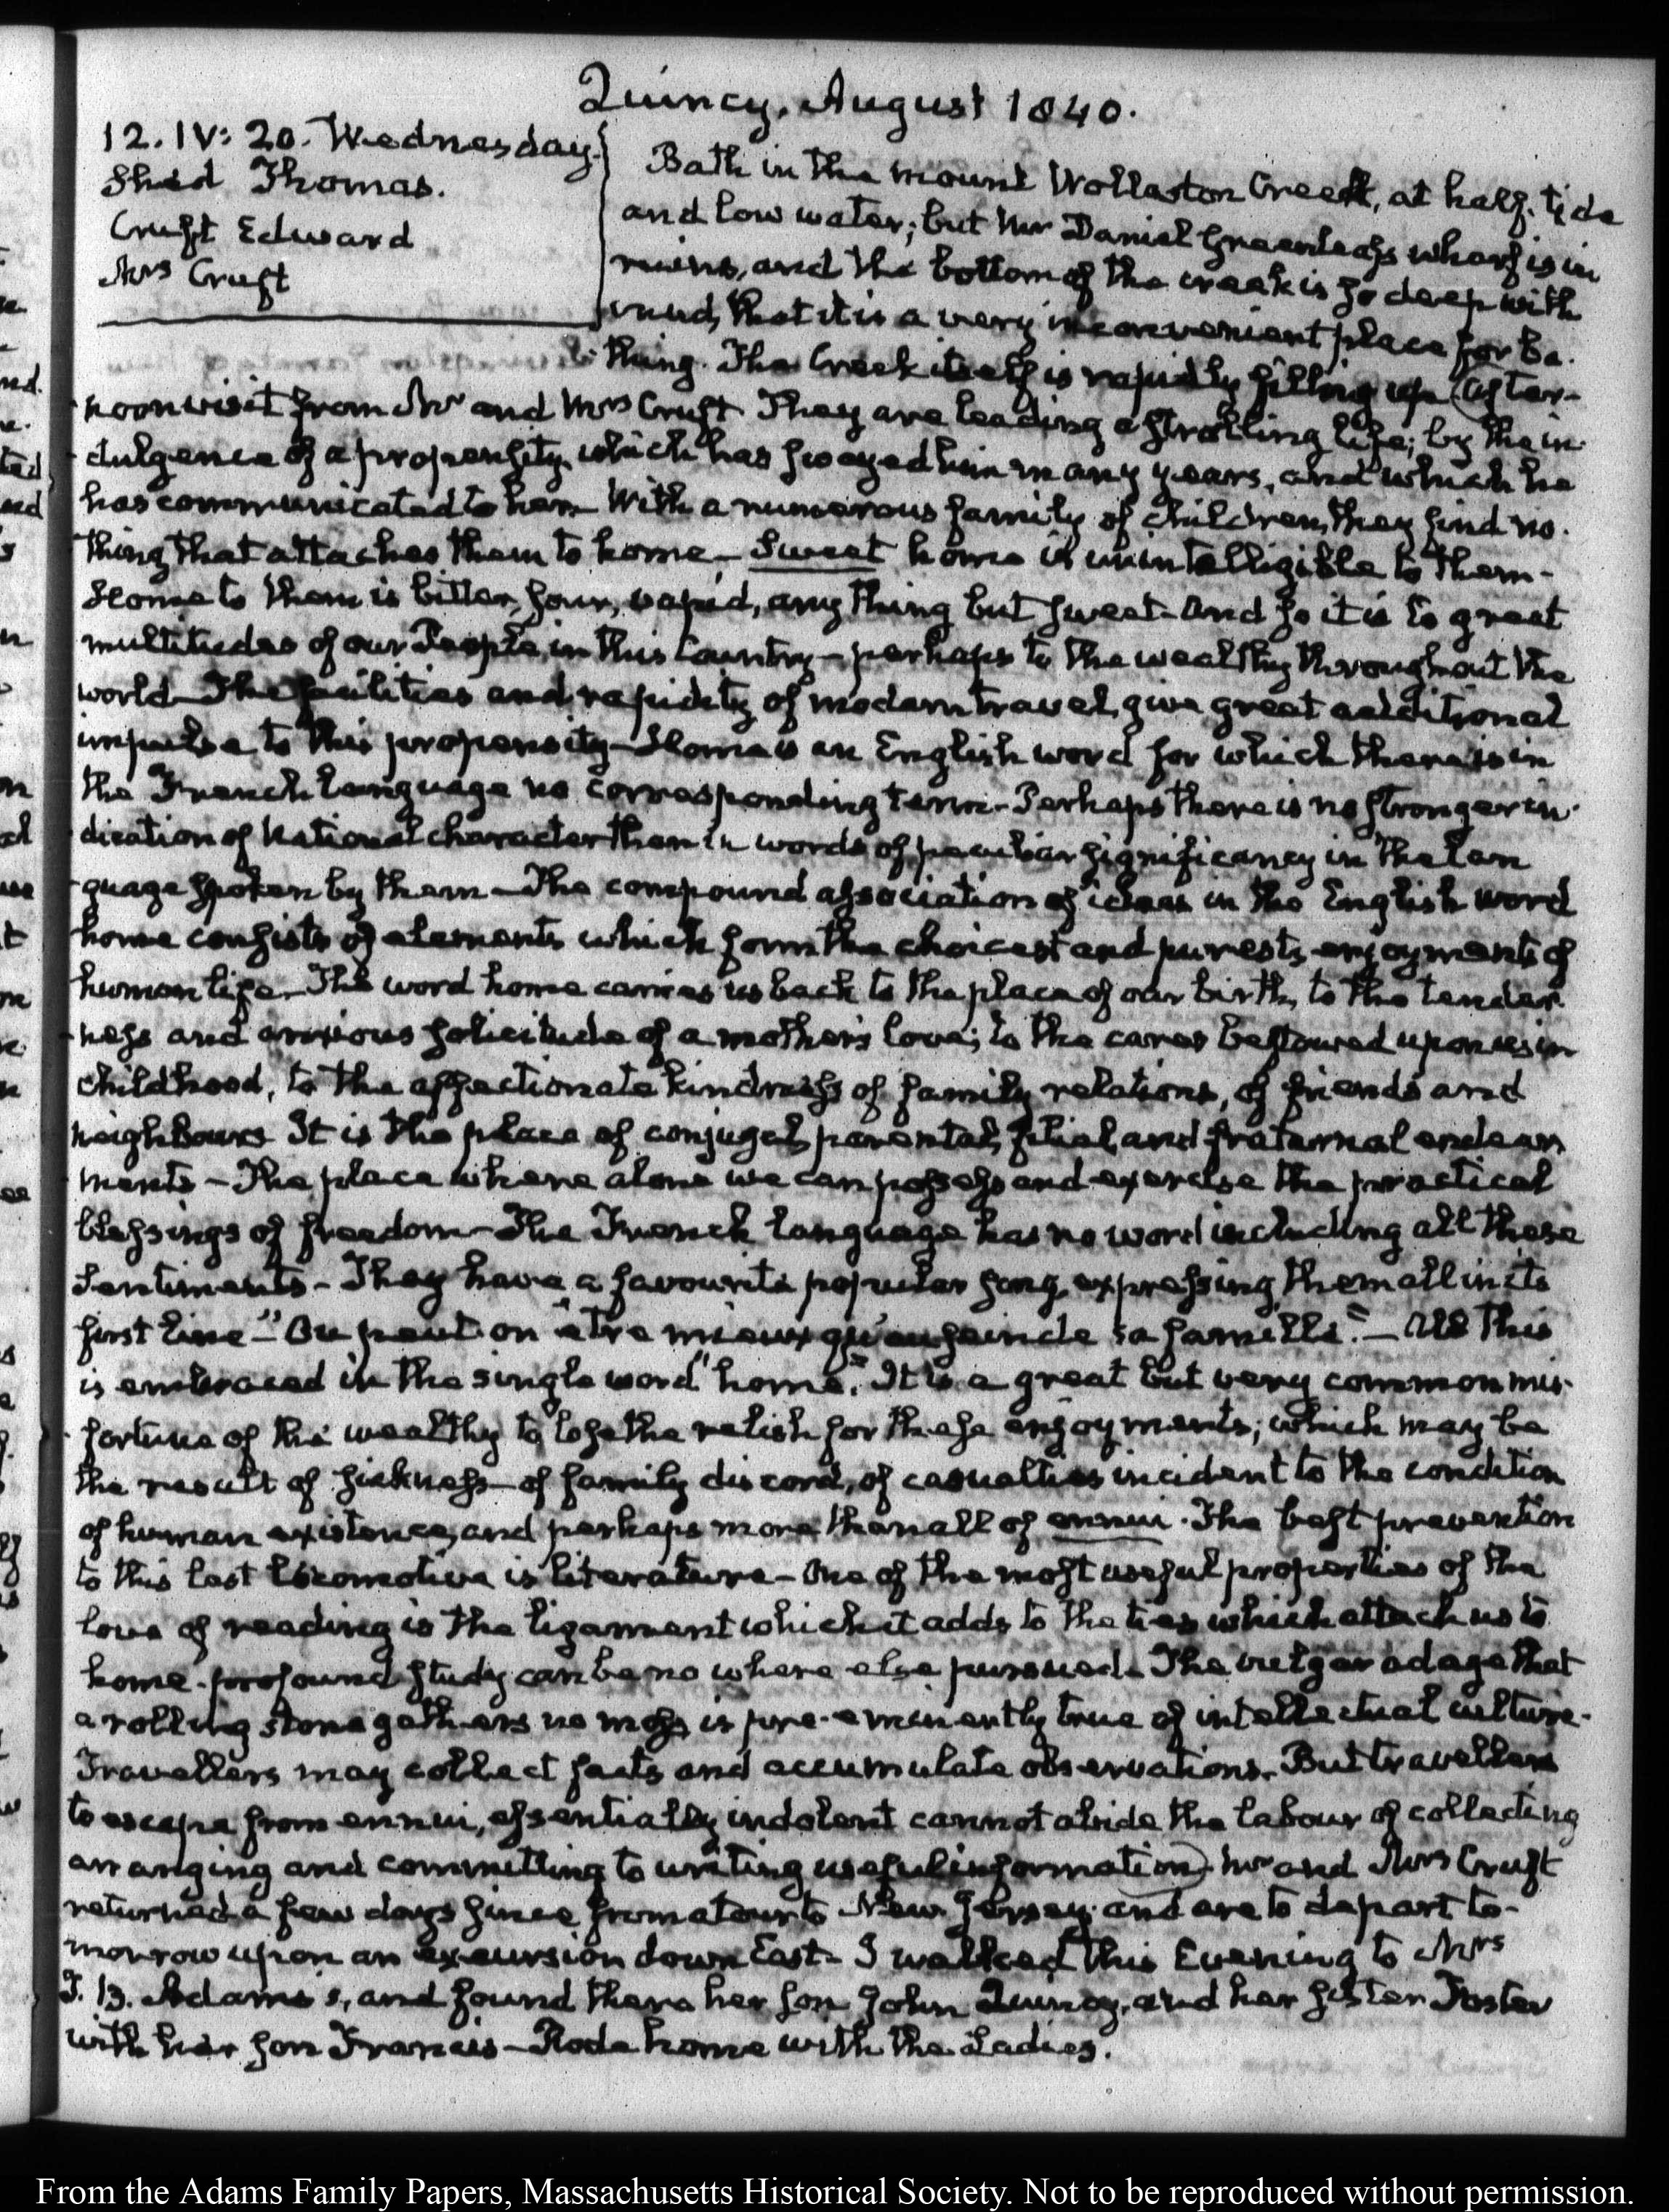 Quincy, August 1840.
12. IV: 20. Wednesday.
Shed Thomas.
Cruft Edward
Mrs Cruft
Bath in the mount Wollaston Creek, at half-tide
and low water; but Mr Daniel Greenleaf's wharf is in
ruins, and the bottom of the creek is so deep with
mud, that it is a very inconvenient place for ba-
thing. The Creek itself is rapidly filling up. After-
noon visit from Mr and Mrs Cruft They are leading a strolling life; by the in-
dulgence of a propensity, which has swayed him many years, and which he
has communicated to her. With a numerous family of children, they find no-
thing that attaches them to home - Sweet home is unintelligible to them -
Home to them is bitter, sour, vapid, any thing but sweet - and so it is to great
multitudes of our People, in this Country - perhaps to the wealthy throughout the
world - The facilities and rapidity of modern travel, give great additional
impulse to this propensity - Home is an English word for which there is in
the French language no corresponding term - Perhaps there is no stronger in-
dication of National character than in words of peculiar significancy in the lan
guage spoken by them - The compound association of ideas in the English word
home consists of elements which form the choicest and purest enjoyments of
human life - The word home carries us back to the place of our birth, to the tender-
ness and anxious solicitude of a mother's love; to the cares bestowed upon us in
childhood, to the affectionate kindness of family relations, of friends and
neighbours It is the place of conjugal, parental, filial and fraternal endear
ments - The place where alone we can possess and exercise the practical
blessings of freedom - The French language has no word including all these
Sentiments - They have a favourite popular song, expressing them all in its
first line - "Ou peut on être mieux qu'au sein de sa famille." - All this
is embraced in the single word "home". It is a great but very common mis-
fortune of the wealthy to lose the relish for these enjoyments; which may be
the result of sickness - of family discord, of casualties incident to the condition
of human existence, and perhaps more than all of ennui. The best prevention
to this last locomotive is literature - One of the most useful properties of the
love of reading is the ligament which it adds to the ties which attach us to
home - profound study can be no where else pursued - The vulgar adage that
a rolling stone gathers no moss is pre-eminently true of intellectual culture -
Travellers may collect facts and accumulate observations. But travellers
to escape from ennui, essentially indolent cannot abide the labour of collecting
arranging and committing to writing useful information) Mr and Mrs Cruft
returned a few days since from a tour to New Jersey and are to depart to-
morrow upon an excursion down East - I walked this Evening to Mrs
T. B. Adams's, and found there her son John Quincy, and her sister Foster
with her son Francis - Rode home with the Ladies.
From the Adams Family Papers, Massachusetts Historical Society. Not to be reproduced without permission.